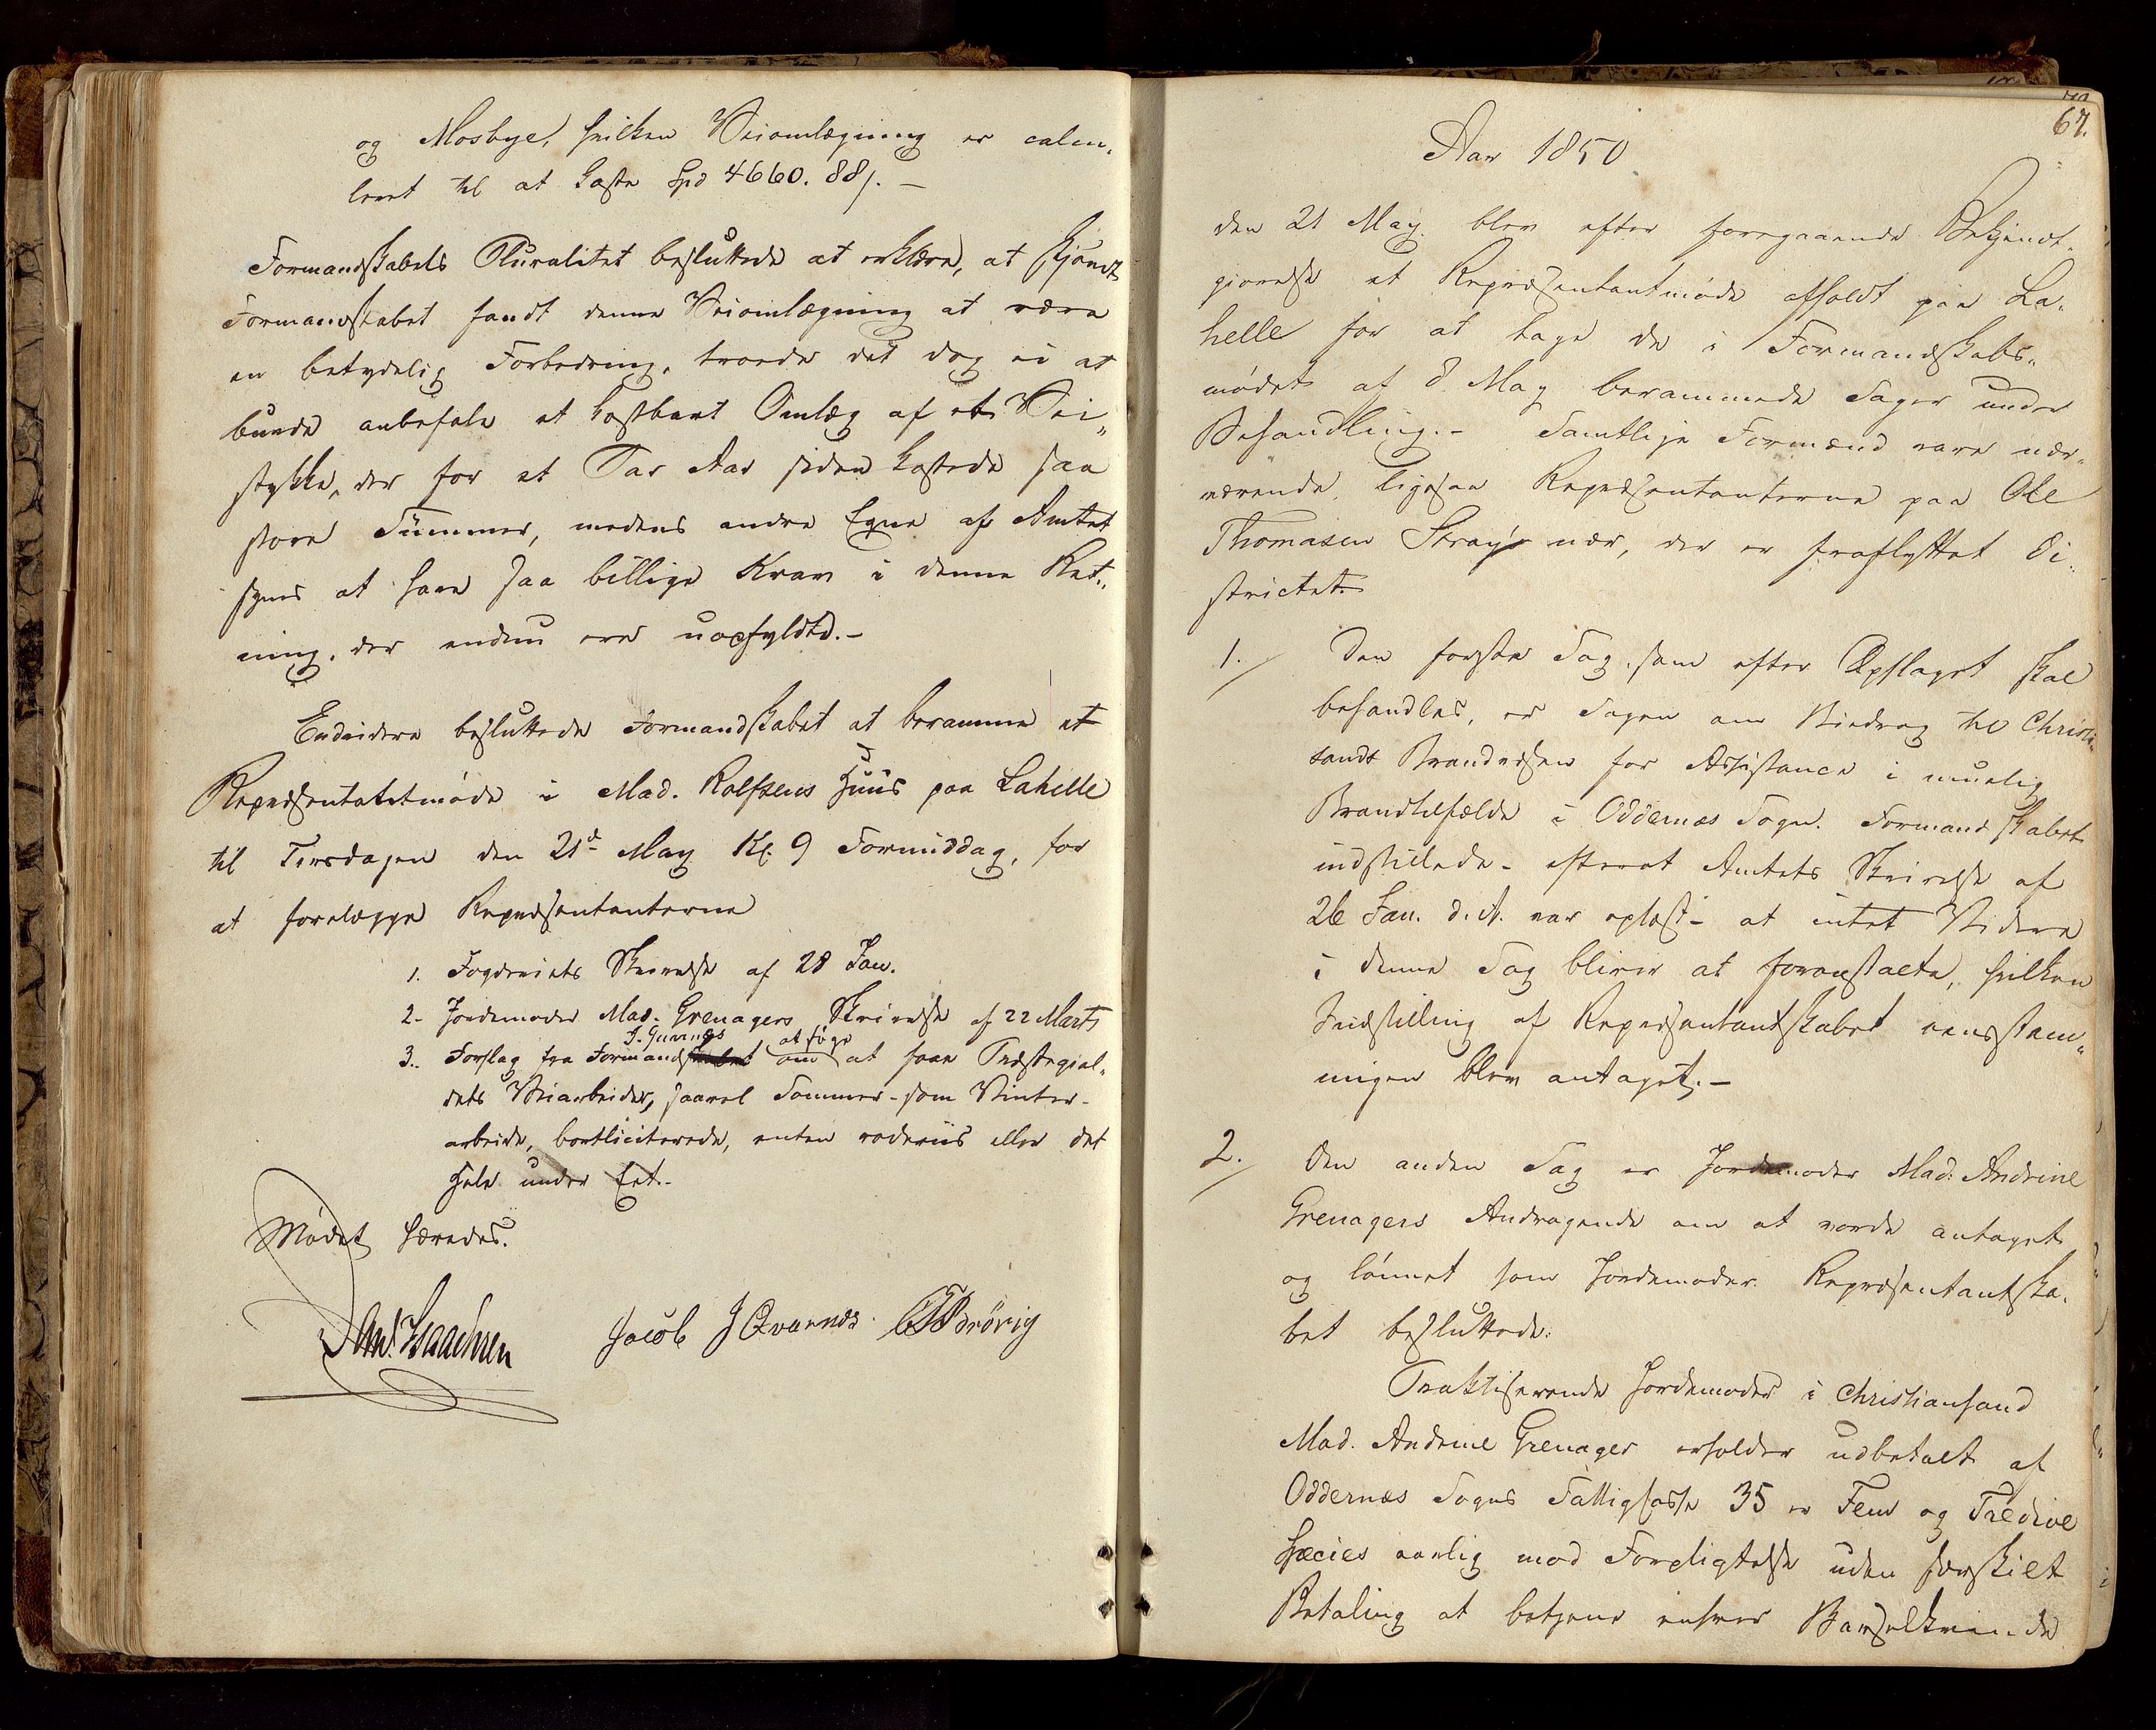 og Mosbye, hvilken Veiomlægning er calcu„
leret til at koste Spd 4660. 88 s. –
Formandskabets Pluralitet besluttede at erklære, at skjøndt
Formandskabet fandt denne Veiomlægning at være
en betydelig Forbedring, troede det dog ei at
burde anbefale et kostbart Omlæg af et Vei„
stykke, der for et Par Aar siden kostede saa
store Summer, medens andre Egne af Amtet
synes at have saa billige Krav i denne Ret„
ning, der endnu ere uopfyldte.–
Endvidere besluttede Formandskabet at beramme et
Repræsentantmøde i Mad. Rolfsens Huus paa Lahelle
til Tirsdagen den 21de May Kl. 9 Formiddag, for
at forelægge Repræsentanterne
1. Fogderiets Skrivelse af 28 Jan.
2. Jordemoder Mad. Grenagers Skrivelse af 22 Marts
J. Qvarnes at søge
3. Forslag fra Formand om at faae Prestegjel„
dets Veiarbeider, saavel Sommer- som Vinter-
arbeide, bortliciterede, enten rodeviis eller det
Hele under Eet.-
Mødet hævedes.
Dan. Isaachsen Jacob J Qvarnes
67.
Aar 1850
den 21 May blev efter foregaaende Bekjendt„
gjørelse et Repræsentantmøde afholdt paa La„
helle for at tage de i Formandskabs„
mødet af 8 May berammede Sager under
Behandling.– Samtlige Formænd vare nær„
værende, ligesaa Repræsentanterne paa Ole
Thomasen Strays nær, der er fraflyttet Di„
strictet.
1. Den første Sag, som efter Opslaget skal
behandles, er Sagen om Bidrag til Christi„
sands Brandvæsen for Assistance i muelig
Brandtilfælde i Oddernæs Sogn. Formandskabet
indstillede – efterat Amtets Skrivelse af
26 Jan. d. A. var oplæst – at intet Videre
i denne Sag bliver at foranstalte, hvilken
Indstilling af Repræsentantskabet eensstem„
migen blev antaget.–
2. Den anden Sag er Jordemoder Mad. Andrine
Grenagers Andragende om at vorde antaget
og lønnet som Jordemoder. Repræsentantska„
bet besluttede:
Praktiserende Jordemoder i Christiansand
Mad. Andrine Grenager erholder udbetalt af
Oddernæs Sogns Fattigkasse 35 er Fem og Tredive
Species aarlig mod Forpligtelse uden særskilt
Betaling at betjene enhver Barselkvinde